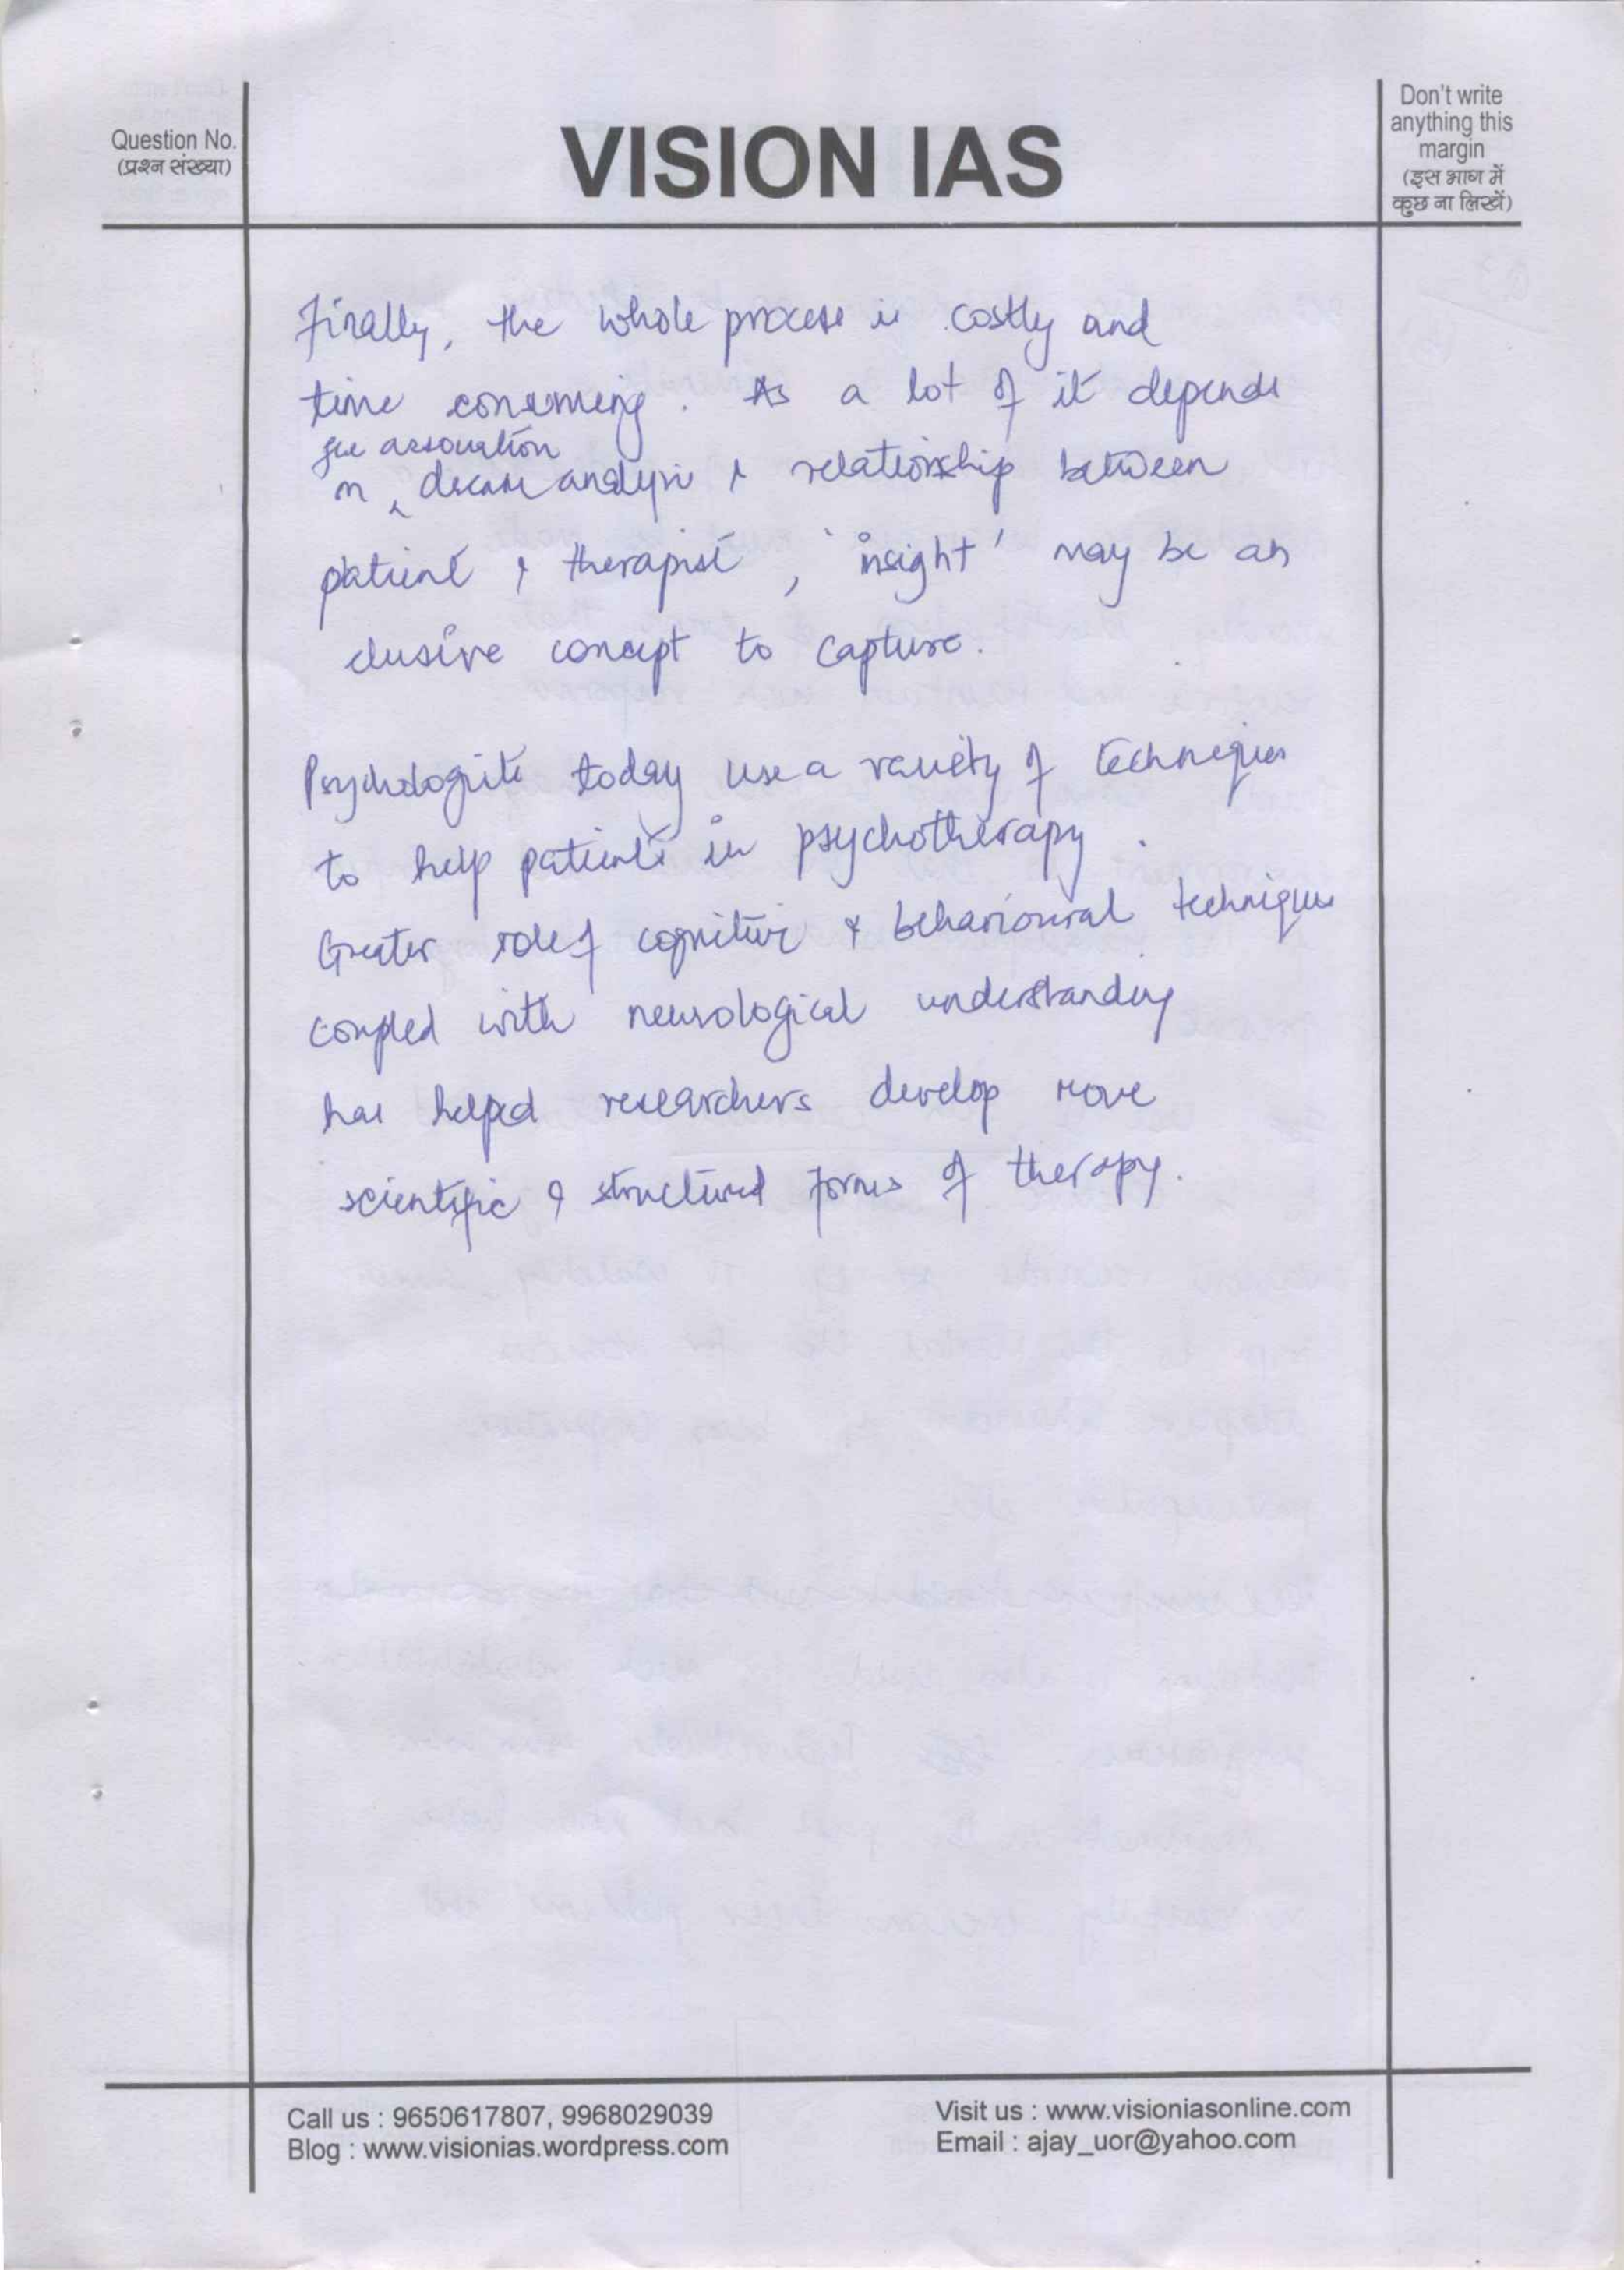 Question No.
(प्रश्न संख्या)
VISION IAS
Don't write
anything this
margin
(इस भाग में
कुछ ना लिखें)
Finally, the whole process is costly and
time consuming. As a lot of it depends
free association
on ^ dream analysis & relationship between
patient & therapist, 'insight' may be an
elusive concept to capture.
Psychologists today use a variety of techniques
to help patients in psychotherapy.
Greater role of cognitive & behavioural techniques
coupled with neurological understanding
has helped researchers develop more
scientific & structured forms of therapy.
Call us : 9650617807, 9968029039
Blog : www.visionias.wordpress.com
Visit us : www.visioniasonline.com
Email : ajay_uor@yahoo.com